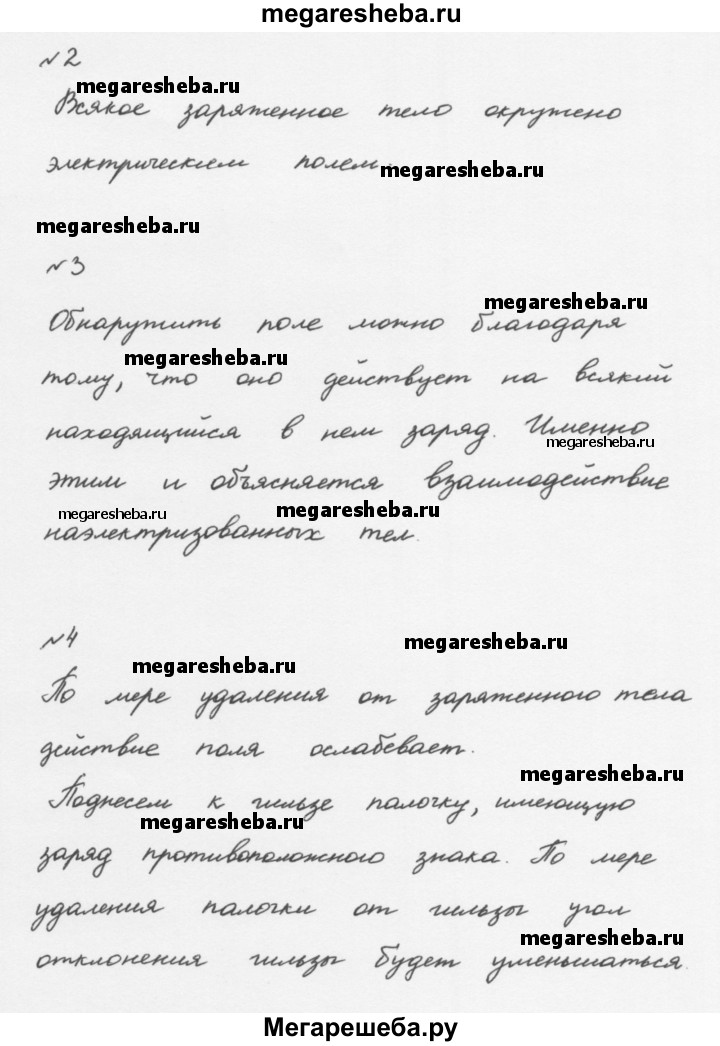 megaresheba.ru
№2
megaresheba.ru
Всякое заряженное тело окружено
электрическим полем.
megaresheba.ru
megaresheba.ru
№3
megaresheba.ru
Обнаружить поле можно благодаря
megaresheba.ru
тому, что оно действует на всякий
находящийся в нем заряд. Именно
megaresheba.ru
этим и объясняется взаимодействие
megaresheba.ru
megaresheba.ru
наэлектризованных тел.
№4
megaresheba.ru
megaresheba.ru
По мере удаления от заряженного тела
действие поля ослабевает.
megaresheba.ru
Поднесем к гильзе палочку, имеющую
megaresheba.ru
заряд противоположного знака. По мере
удаления палочки от гильзы угол
megaresheba.ru
отклонения гильзы будет уменьшаться.
Мегарешеба.ру